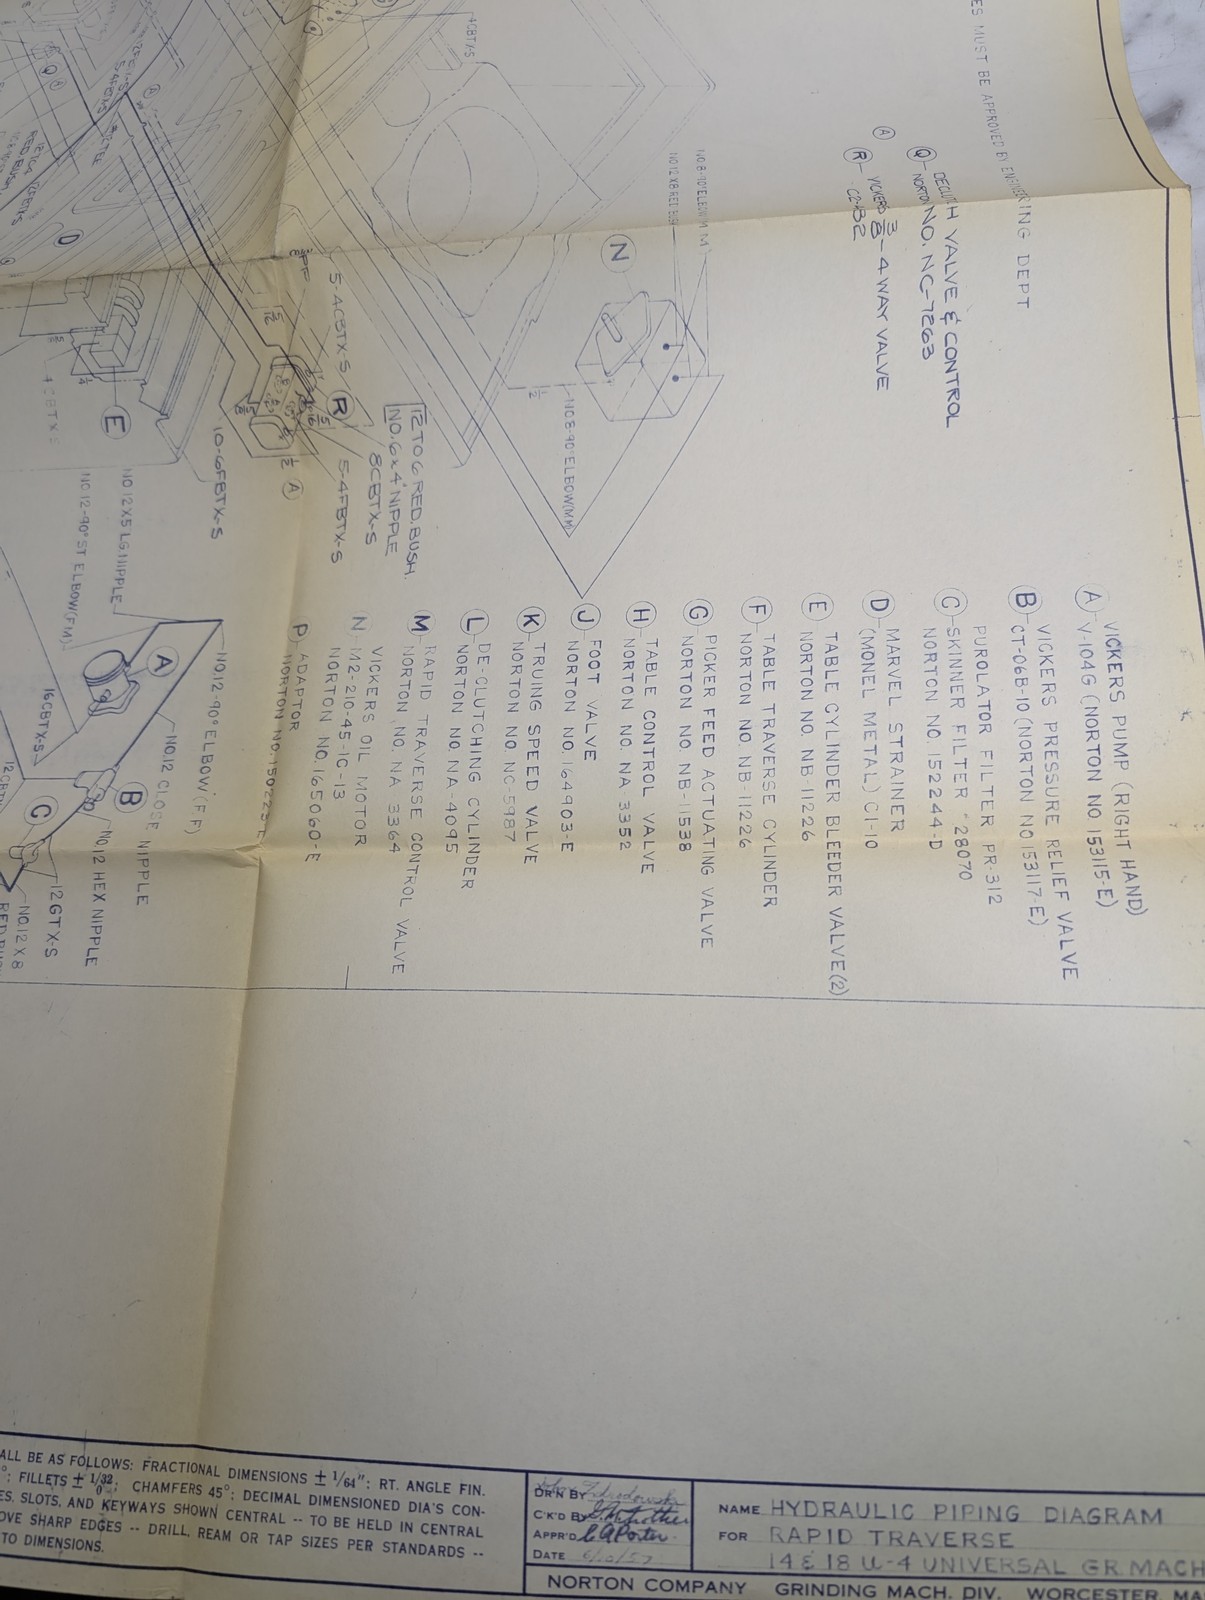 ES MUST BE APPROVED BY ENGINEERING DEPT
Q DECLUTCH VALVE & CONTROL
NORTON NO. NC-7263
A
R VICKERS 3/8-4 WAY VALVE
C2-132
A VICKERS PUMP (RIGHT HAND)
V-104G (NORTON NO. 153115-E)
B VICKERS PRESSURE RELIEF VALVE
CT-06B-10 (NORTON NO 153117-E)
PUROLATOR FILTER PR-312
C SKINNER FILTER #28070
NORTON NO. 152244-D
D MARVEL STRAINER
(MONEL METAL) C1-10
E TABLE CYLINDER BLEEDER VALVE(2)
NORTON NO. NB-11226
F TABLE TRAVERSE CYLINDER
NORTON NO. NB-11226
G PICKER FEED ACTUATING VALVE
NORTON NO. NB-11538
H TABLE CONTROL VALVE
NORTON NO. NA 3352
J FOOT VALVE
NORTON NO. 164903-E
K TRUING SPEED VALVE
NORTON NO. NC-5987
L DE-CLUTCHING CYLINDER
NORTON NO. NA-4095
M RAPID TRAVERSE CONTROL VALVE
NORTON NO. NA 3364
N VICKERS OIL MOTOR
M2-210-45-1C-13
NORTON NO. 165060-E
P ADAPTOR
NORTON NO. 150223-E
4CBTX-S
NO.8-90°ELBOW(M.M)
NO.12 X 8 RED. BUSH
N
NO.8-90°ELBOW(M.M)
1/2
12 TO 6 RED. BUSH.
NO. 6 x 4" NIPPLE
8CBTX-S
5-4CBTX-S
R
5-4FBTX-S
5/16
5/16
5/8
1/2
A
10-6FBTX-S
Q
D
E
4CBTX-S
NO.12X5 LG NIPPLE
NO.12-90° ST ELBOW(F.M)
NO.12-90°ELBOW(F.F)
A
NO.12 CLOSE NIPPLE
16CBTX-S
B
NO.12 HEX NIPPLE
C
12GTX-S
NO.12 X 8
ALL BE AS FOLLOWS: FRACTIONAL DIMENSIONS ± 1/64": RT. ANGLE FIN.
°; FILLETS ± 1/32 0; CHAMFERS 45°; DECIMAL DIMENSIONED DIA'S CON-
ES, SLOTS, AND KEYWAYS SHOWN CENTRAL -- TO BE HELD IN CENTRAL
OVE SHARP EDGES -- DRILL, REAM OR TAP SIZES PER STANDARDS --
TO DIMENSIONS.
DR'N BY
C'K'D BY
APPR'D C A Porter
DATE
NAME HYDRAULIC PIPING DIAGRAM
FOR RAPID TRAVERSE
14 & 18 U-4 UNIVERSAL GR. MACH
NORTON COMPANY GRINDING MACH. DIV. WORCESTER, MA